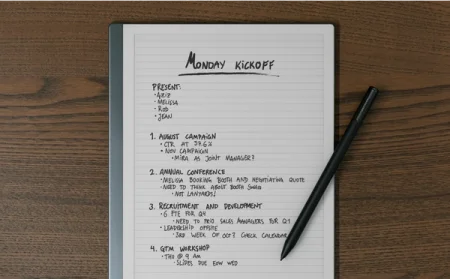 MONDAY KICKOFF
PRESENT:
• AZIZ
• MELISSA
• ROB
• JEAN
1. AUGUST CAMPAIGN
• CTR AT 27.6%
• NOV CAMPAIGN
• MIRA AS JOINT MANAGER?
2. ANNUAL CONFERENCE
• MELISSA BOOKING BOOTH AND NEGOTIATING QUOTE
• NEED TO THINK ABOUT BOOTH SWAG
• NOT LANYARDS!
3. RECRUITMENT AND DEVELOPMENT
• 6 FTE FOR Q4
• NEED TO PRIO SALES MANAGERS FOR Q1
• LEADERSHIP OFFSITE
• 3RD WEEK OF OCT? CHECK CALENDAR
4. GTM WORKSHOP
• THU @ 9 AM
• SLIDES DUE EOW WED